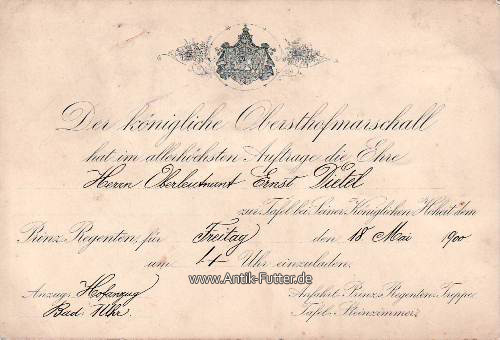 Der königliche Obersthofmarschall
hat im allerhöchsten Auftrage die Ehre
Herrn Oberleutnant Ernst Dietel
zur Tafel bei Seiner Königlichen Hoheit dem
Prinz Regenten, für Freitag den 18 Mai 1900
um 4 Uhr einzuladen.
www.Antik-Futter.de
Anzug: Hofanzug Anfahrt: Prinz Regenten-Treppe
Tafel: Steinzimmer.